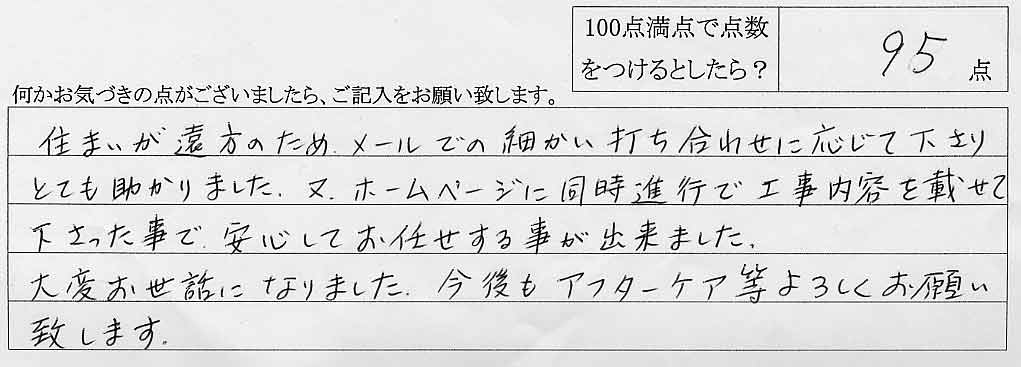 100点満点で点数
をつけるとしたら？
95 点
何かお気づきの点がございましたら、ご記入をお願い致します。
住まいが遠方のため、メールでの細かい打ち合わせに応じて下さり
とても助かりました。又、ホームページに同時進行で工事内容を載せて
下さった事で、安心してお任せする事が出来ました。
大変お世話になりました。今後もアフターケア等よろしくお願い
致します。